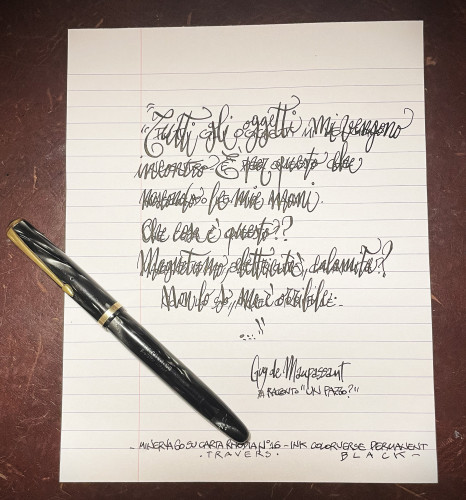 "Tutti gli oggetti mi vengono
incontro? E per questo che
nascondo le mie mani.
Che cosa è questo??
Magnetismo, elettricità, calamita?
Non lo so, ma è orribile.
..."
Guy de Maupassant
# RACCONTO "UN PAZZO?"
- MINERVA 60 SU CARTA RHODIA N°16 - INK COLORVERSE PERMANENT
· TRAVERS · BLACK -